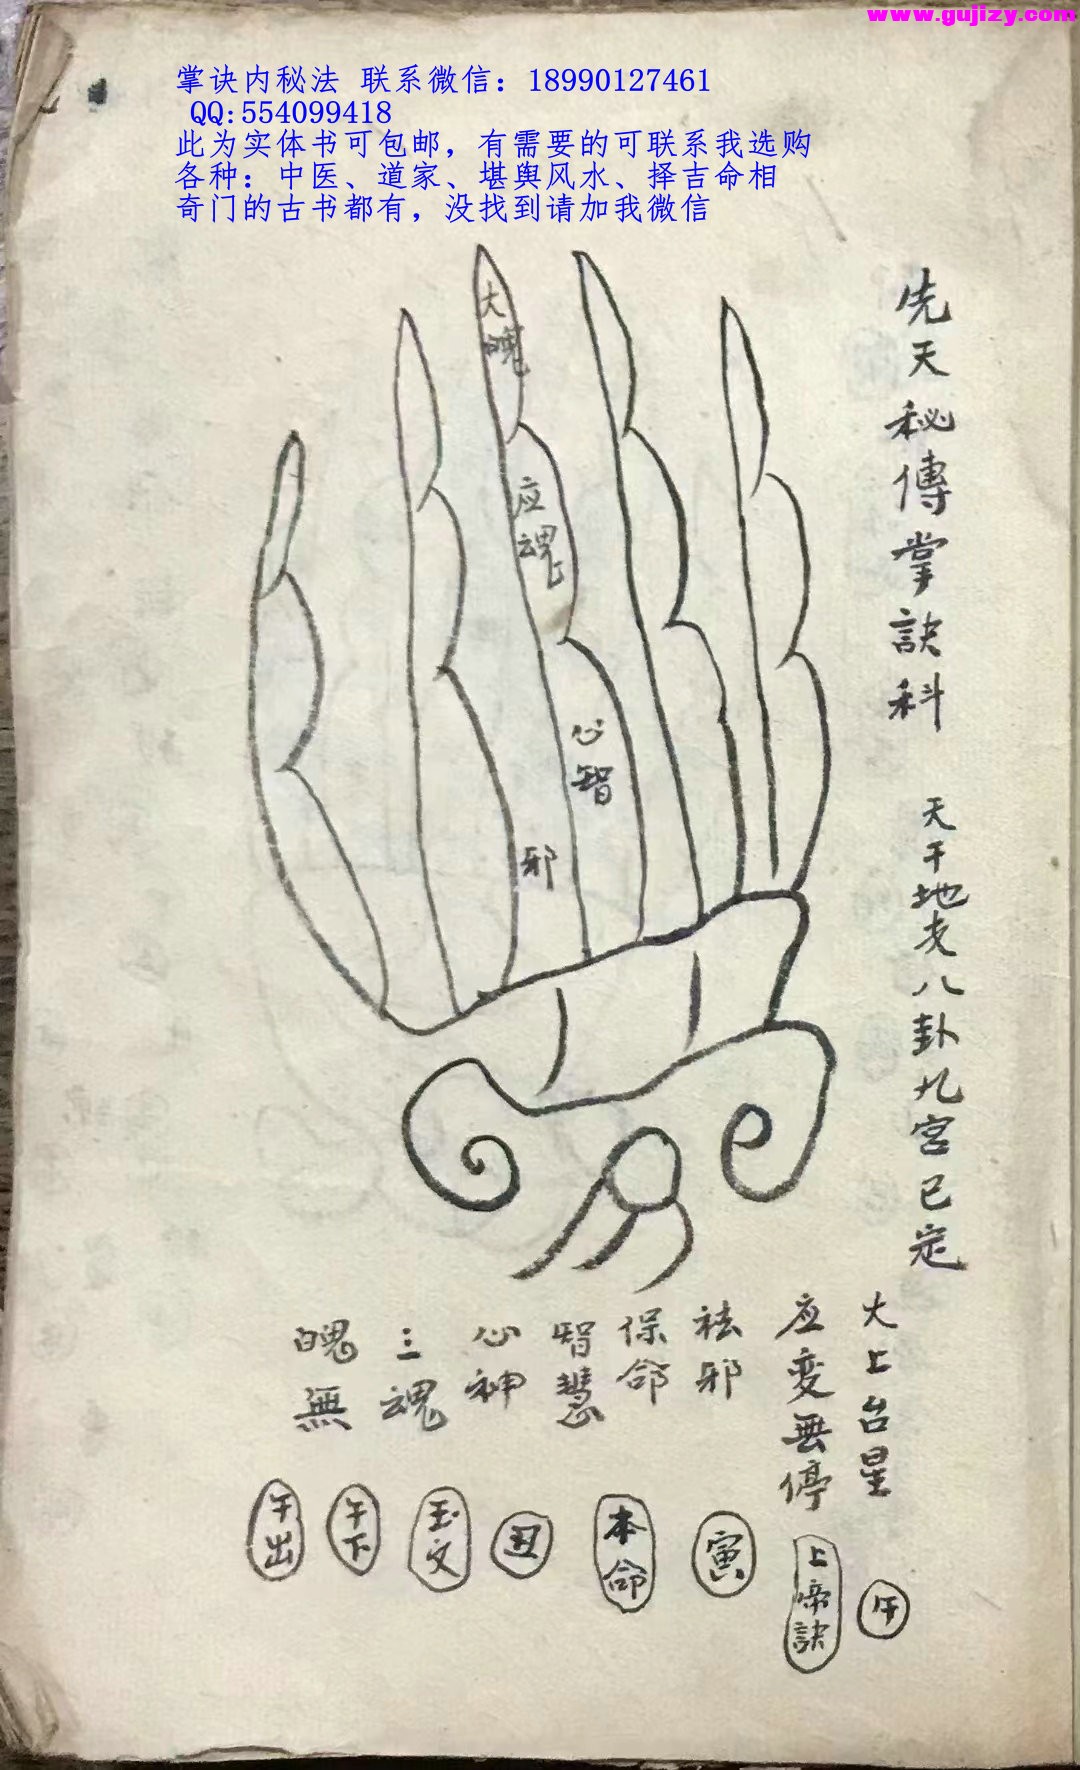 www.gujizy.com
掌诀内秘法 联系微信：18990127461
QQ:554099418
此为实体书可包邮，有需要的可联系我选购
各种：中医、道家、堪舆风水、择吉命相
奇门的古书都有，没找到请加我微信
先天秘傳掌訣科
天干地支八卦九宮已定
大魄
应魂
心智
邪
大上台星 午
应变無停 上帝訣
祛邪 寅
保命 本命
智慧 丑
心神 玉文
三魂 午下
魄無 午出